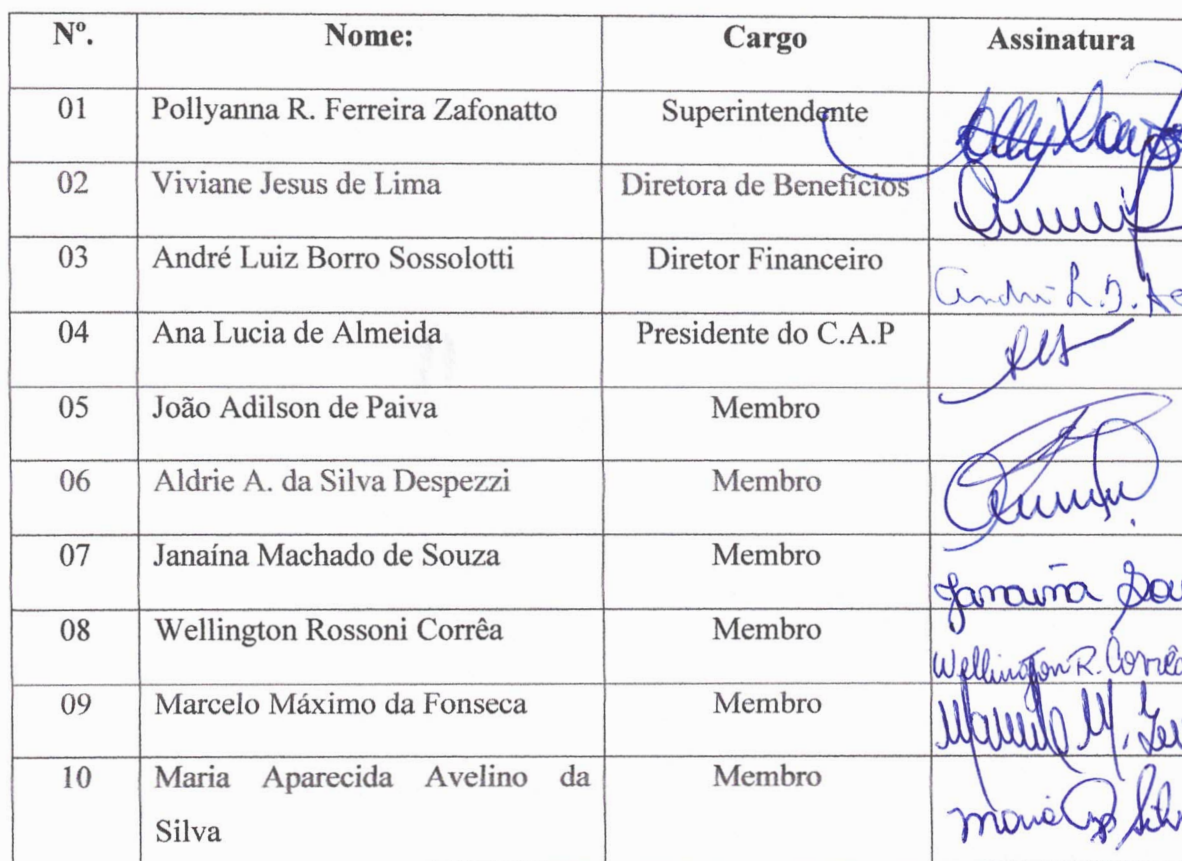 Nº. Nome: Cargo Assinatura
01 Pollyanna R. Ferreira Zafonatto Superintendente
02 Viviane Jesus de Lima Diretora de Benefícios
03 André Luiz Borro Sossolotti Diretor Financeiro
04 Ana Lucia de Almeida Presidente do C.A.P
05 João Adilson de Paiva Membro
06 Aldrie A. da Silva Despezzi Membro
07 Janaína Machado de Souza Membro Janaína
08 Wellington Rossoni Corrêa Membro Wellington R. Corrêa
09 Marcelo Máximo da Fonseca Membro
10 Maria Aparecida Avelino da Membro
Silva